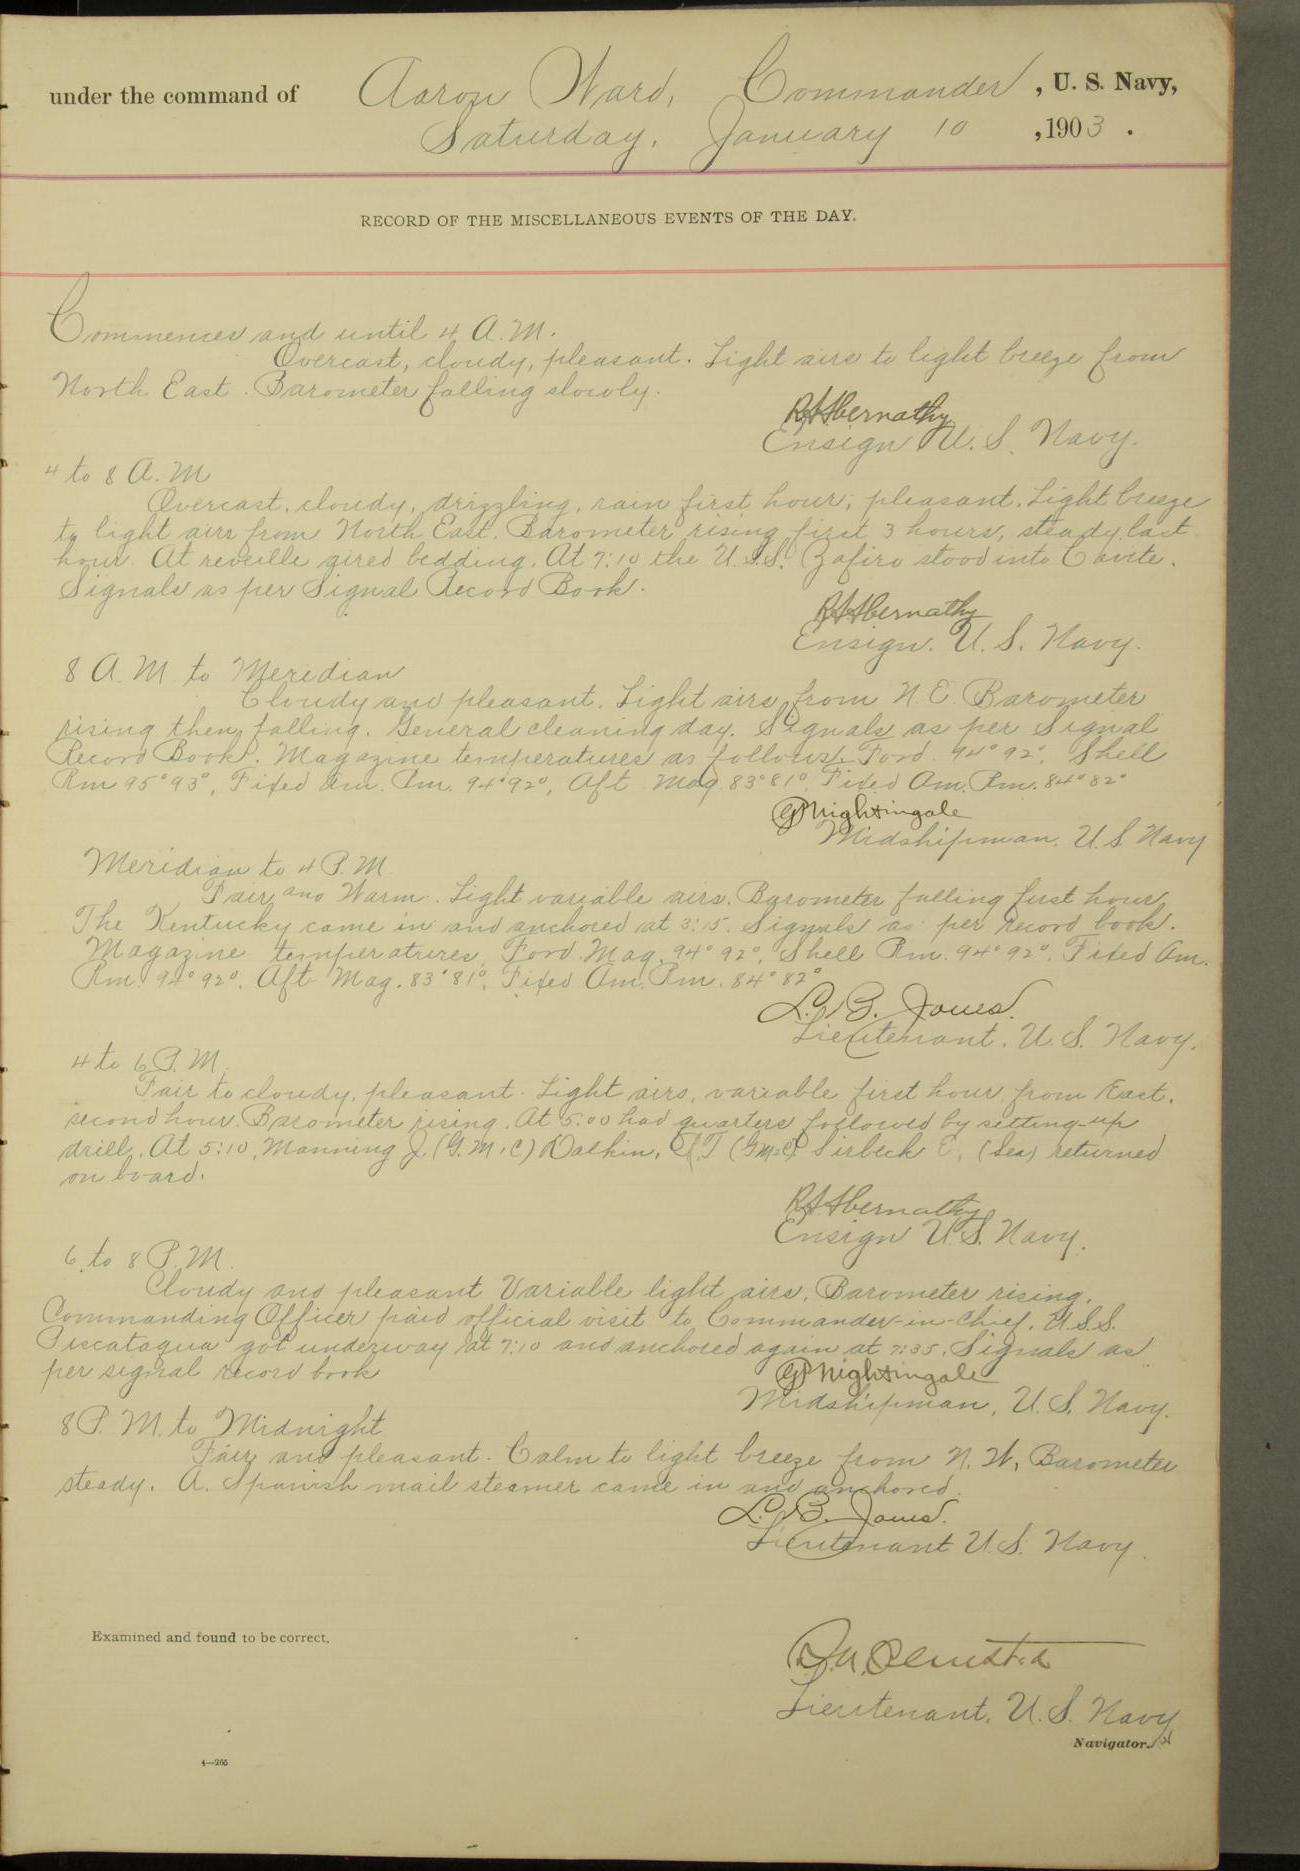 under the command of Aaron Ward, Commander, U. S. Navy,
Saturday, January 10, 1903.
RECORD OF THE MISCELLANEOUS EVENTS OF THE DAY.
Commences and until 4 A.M.
Overcast, cloudy, pleasant. Light airs to light breeze from
North East. Barometer falling slowly.
Abernathy
Ensign U. S. Navy.
4 to 8 A.M
Overcast, cloudy, drizzling, rain first hour, pleasant. Light breeze
to light airs from North East. Barometer rising first 3 hours, steady last
hour. At reveille aired bedding. At 7:10 the U.S.S. Zafiro stood into Cavite.
Signals as per Signal Record Book.
Abernathy
Ensign. U. S. Navy.
8 A.M. to Meridian
Cloudy and pleasant. Light airs from N.E. Barometer
rising then falling. General cleaning day. Signals as per Signal
Record Book. Magazine temperatures as follows Ford. 94° 92°, Shell
Rm 95° 93°, Fixed Am. Rm. 94° 92°, Aft Mag 83° 81° Fixed Am. Rm. 84° 82°
Nightingale
Midshipman, U.S. Navy
Meridian to 4 P.M
Fair and Warm. Light variable airs. Barometer falling first hour
The Kentucky came in and anchored at 3:15. Signals as per record book.
Magazine temperatures, Ford Mag. 94° 92°, Shell Rm. 94° 92°. Fixed Am.
Rm. 94° 92°. Aft Mag. 83° 81°, Fixed Am. Rm. 84° 82°
L. B. Jones.
Lieutenant, U. S. Navy.
4 to 6 P.M.
Fair to cloudy, pleasant. Light airs, variable first hour from East.
second hour. Barometer rising. At 5:00 had quarters followed by setting-up
drill. At 5:10, Manning J. (G.M.1C) (G.M.2C) Sirbeck E, (Sea) returned
on board.
Abernathy
Ensign U.S. Navy.
6 to 8 P.M.
Cloudy and pleasant Variable light airs. Barometer rising.
Commanding Officer paid official visit to Commander-in-Chief. U.S.S.
Piscataqua got underway at 7:10 and anchored again at 7:35. Signals as
per signal record book
Nightingale
Midshipman, U. S. Navy.
8 P.M. to Midnight
Fair and pleasant. Calm to light breeze from N.W. Barometer
steady. A. Spanish mail steamer came in and anchored.
L. B. Jones.
Lieutenant U.S. Navy.
Examined and found to be correct.
Olmsted
Lieutenant, U. S. Navy
Navigator.
4—265